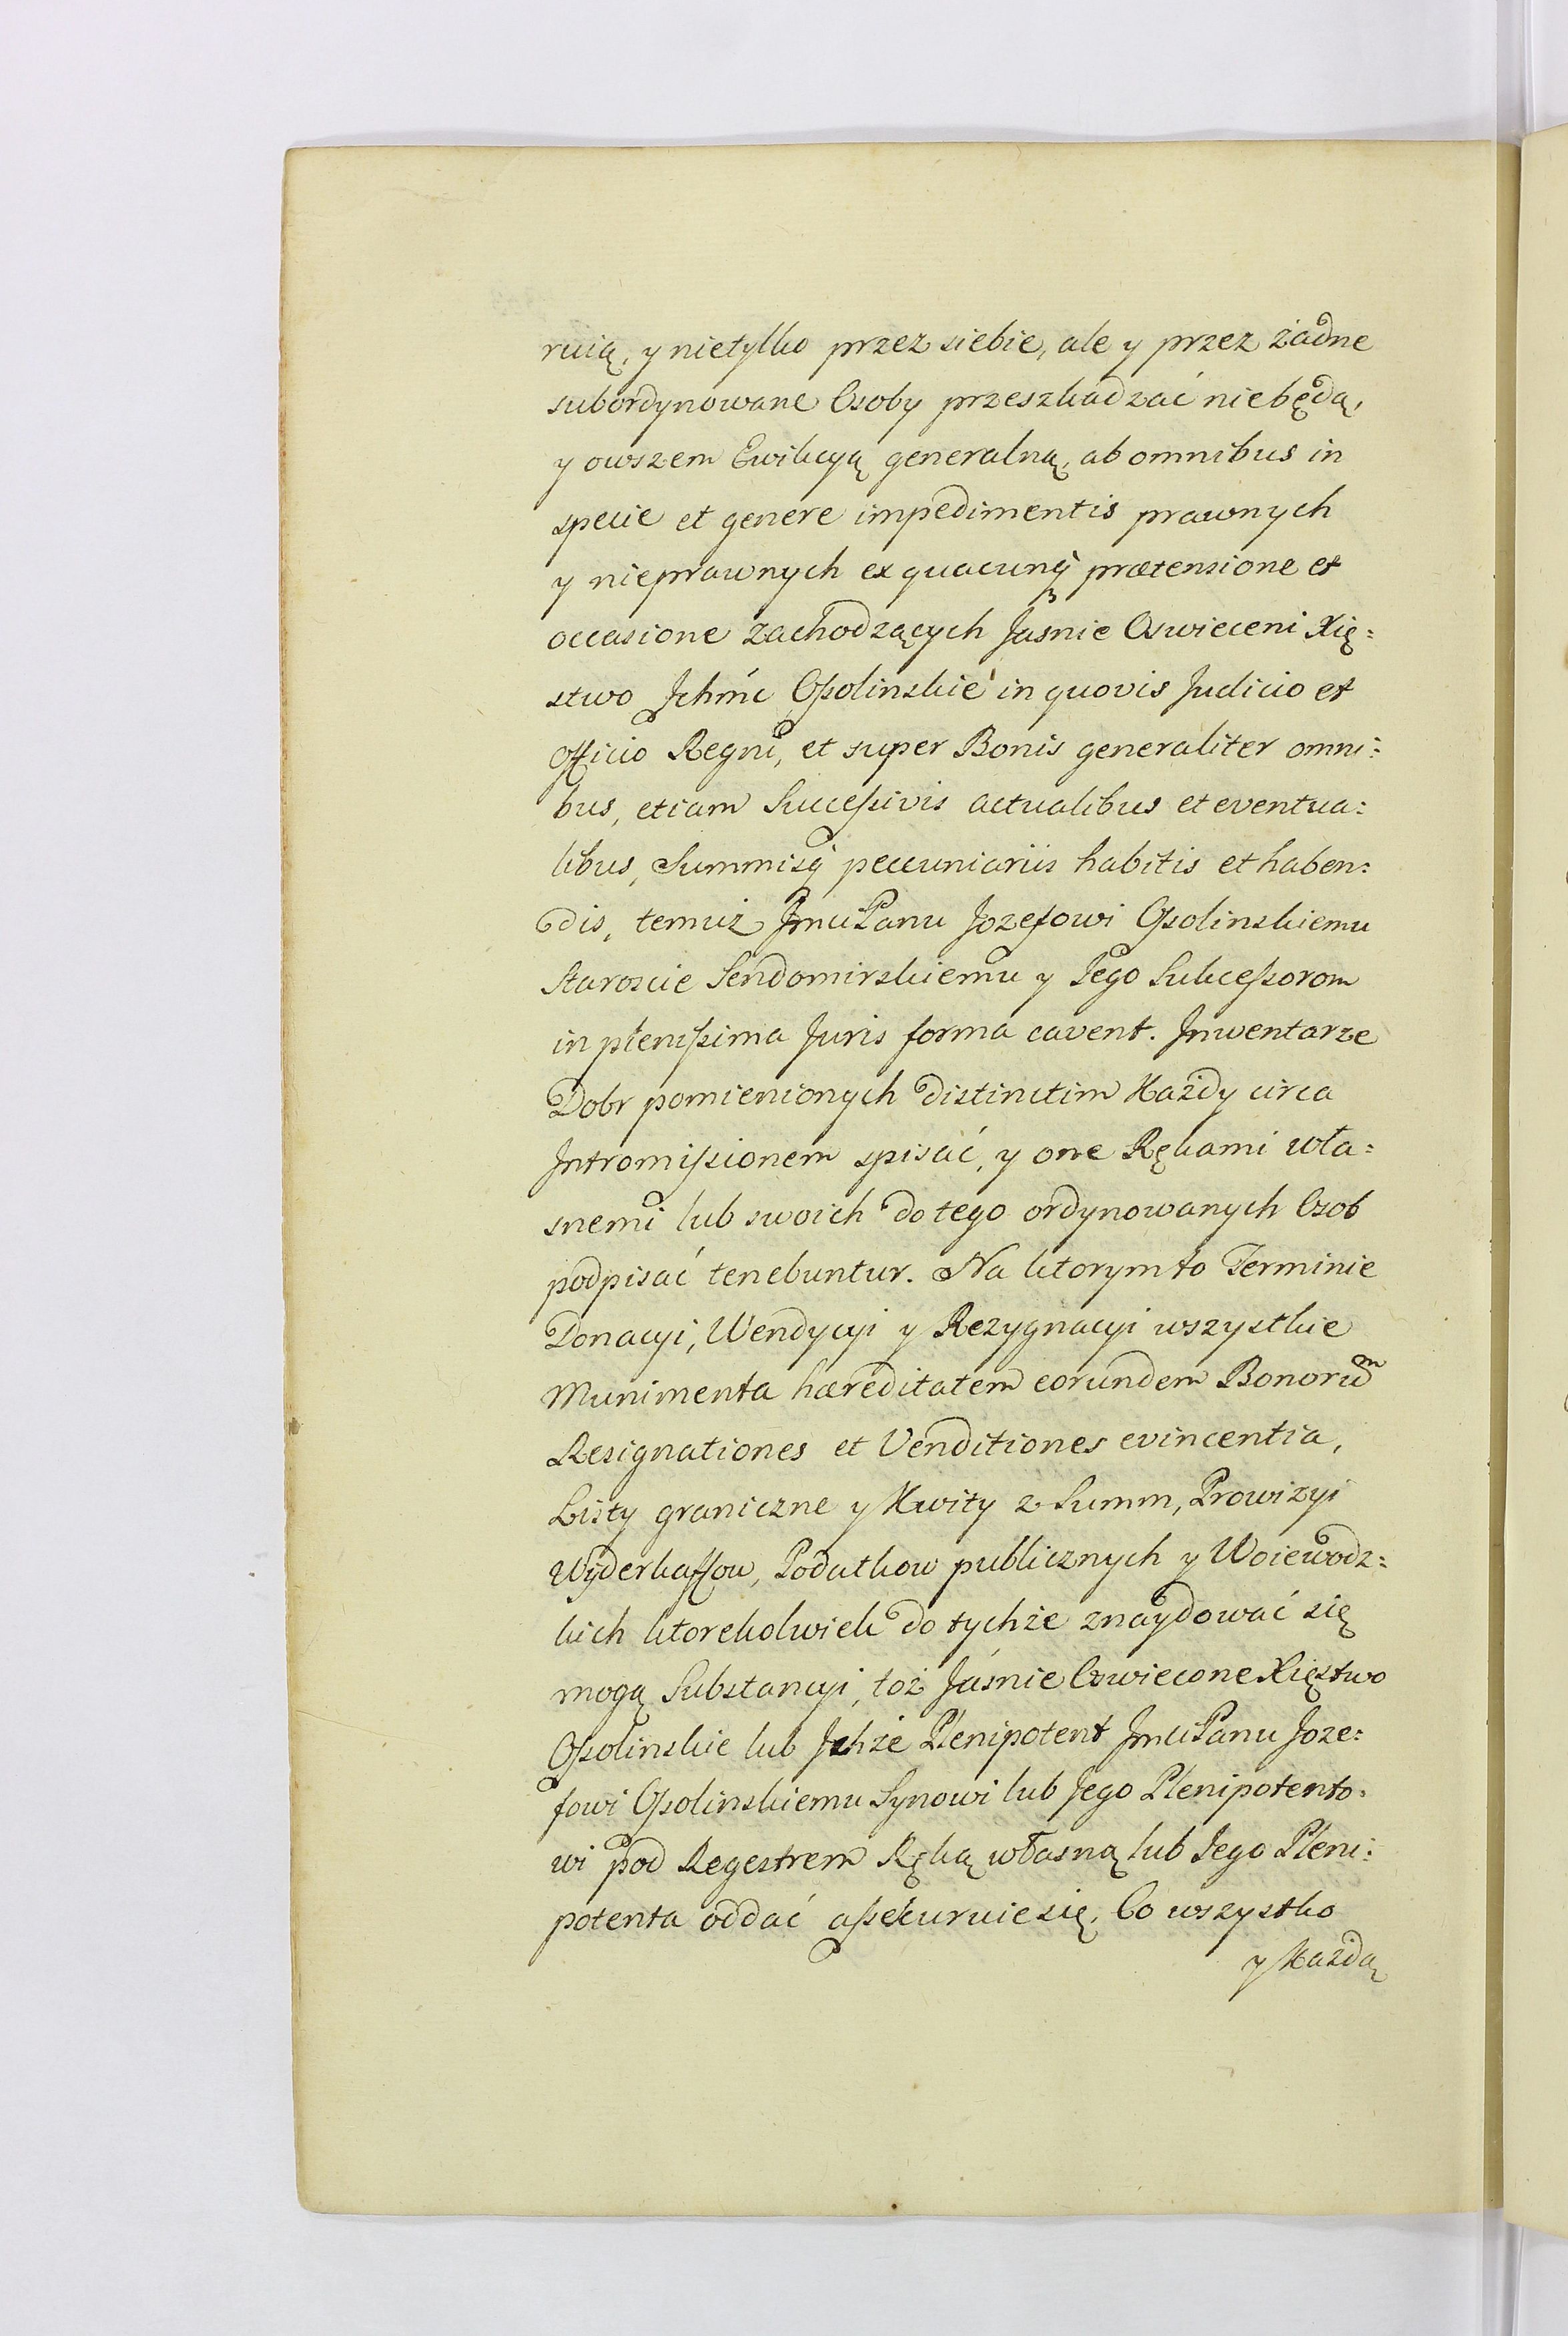 ruią, y nietylko przez siebie, ale y przez żadne
subordynowane Osoby przeszkadzać niebędą,
y owszem Ewikcyą generalną, ab omnibus in
specie et genere impedimentis prawnych
y nieprawnych ex quacunq́ꝫ prætensione et
occasione zachodzących Jaśnie Oswieceni Xię=
stwo Jchmć Oſsolinskie in quovis Judicio et
Officio Regni, et super Bonis generaliter omni=
bus, etiam Succeſsivis actualibus et eventua=
libus, Summisq́ peccuniariis habitis et haben=
dis, temuż JmciPanu Jozefowi Oſsolinskiemu
Staroscie Sendomirskiemu y Jego Sukceſsorom
in pleniſsima Juris forma cavent. Jnwentarze
Dobr pomienionych distinctim Każdy circa
Jntromiſsionem spisać, y one Rękami wła=
snemi lub swoich do tego ordynowanych Osob
podpisać tenebuntur. Na ktorym to Terminie
Donacyi, Wendycyi y Rezygnacyi wszystkie
Munimenta hæreditatem eorundem Bonorum
Resignationes et Venditiones evincentia,
Listy graniczne y Kwity z Summ, Prowizyi
Wyderkaffow, Podatkow publicznych y Woiewodz=
kich ktorekolwiek do tychże znaydować się
mogą Substancyi, toż Jaśnie Oswiecone Xięstwo
Oſsolinskie lub Jchże Plenipotent JmciPanu Joze=
fowi Oſsolinskiemu Synowi lub Jego Plenipotento=
wi pod Regestrem Ręką własną lub Jego Pleni=
potenta oddać aſsekuruie się. Co wszystko
y Każdą